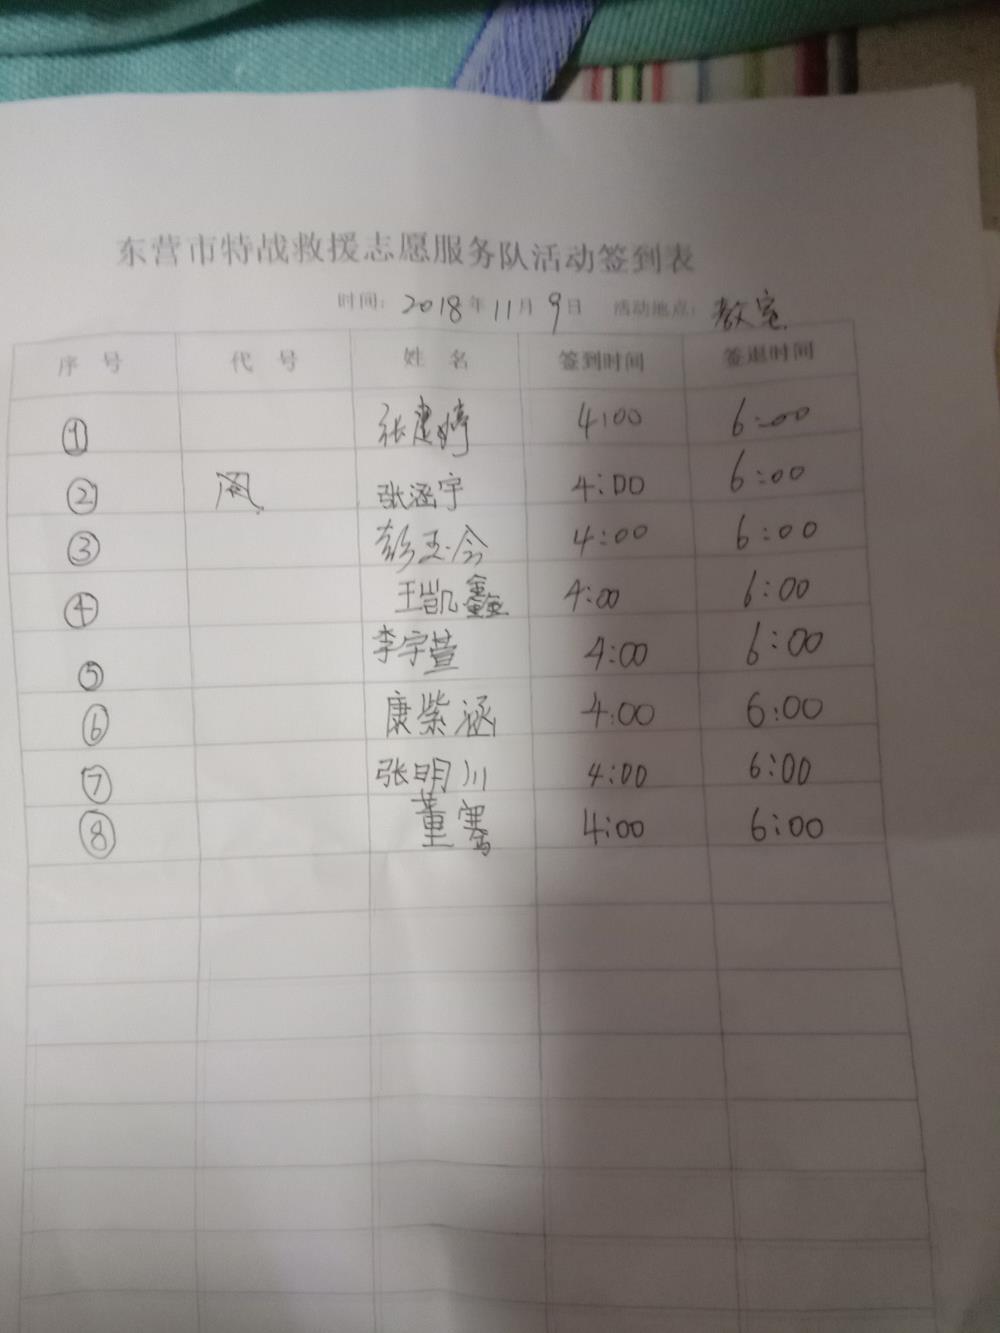 东营市特战救援志愿服务队活动签到表
时间: 2018年11月9日 活动地点: 教室
序号 代号 姓名 签到时间 签退时间
① 张建婷 4:00 6:00
② 张涵宇 4:00 6:00
③ 彭玉会 4:00 6:00
④ 王凯鑫 4:00 6:00
⑤ 李宇萱 4:00 6:00
⑥ 康紫涵 4:00 6:00
⑦ 张明川 4:00 6:00
⑧ 董骞 4:00 6:00